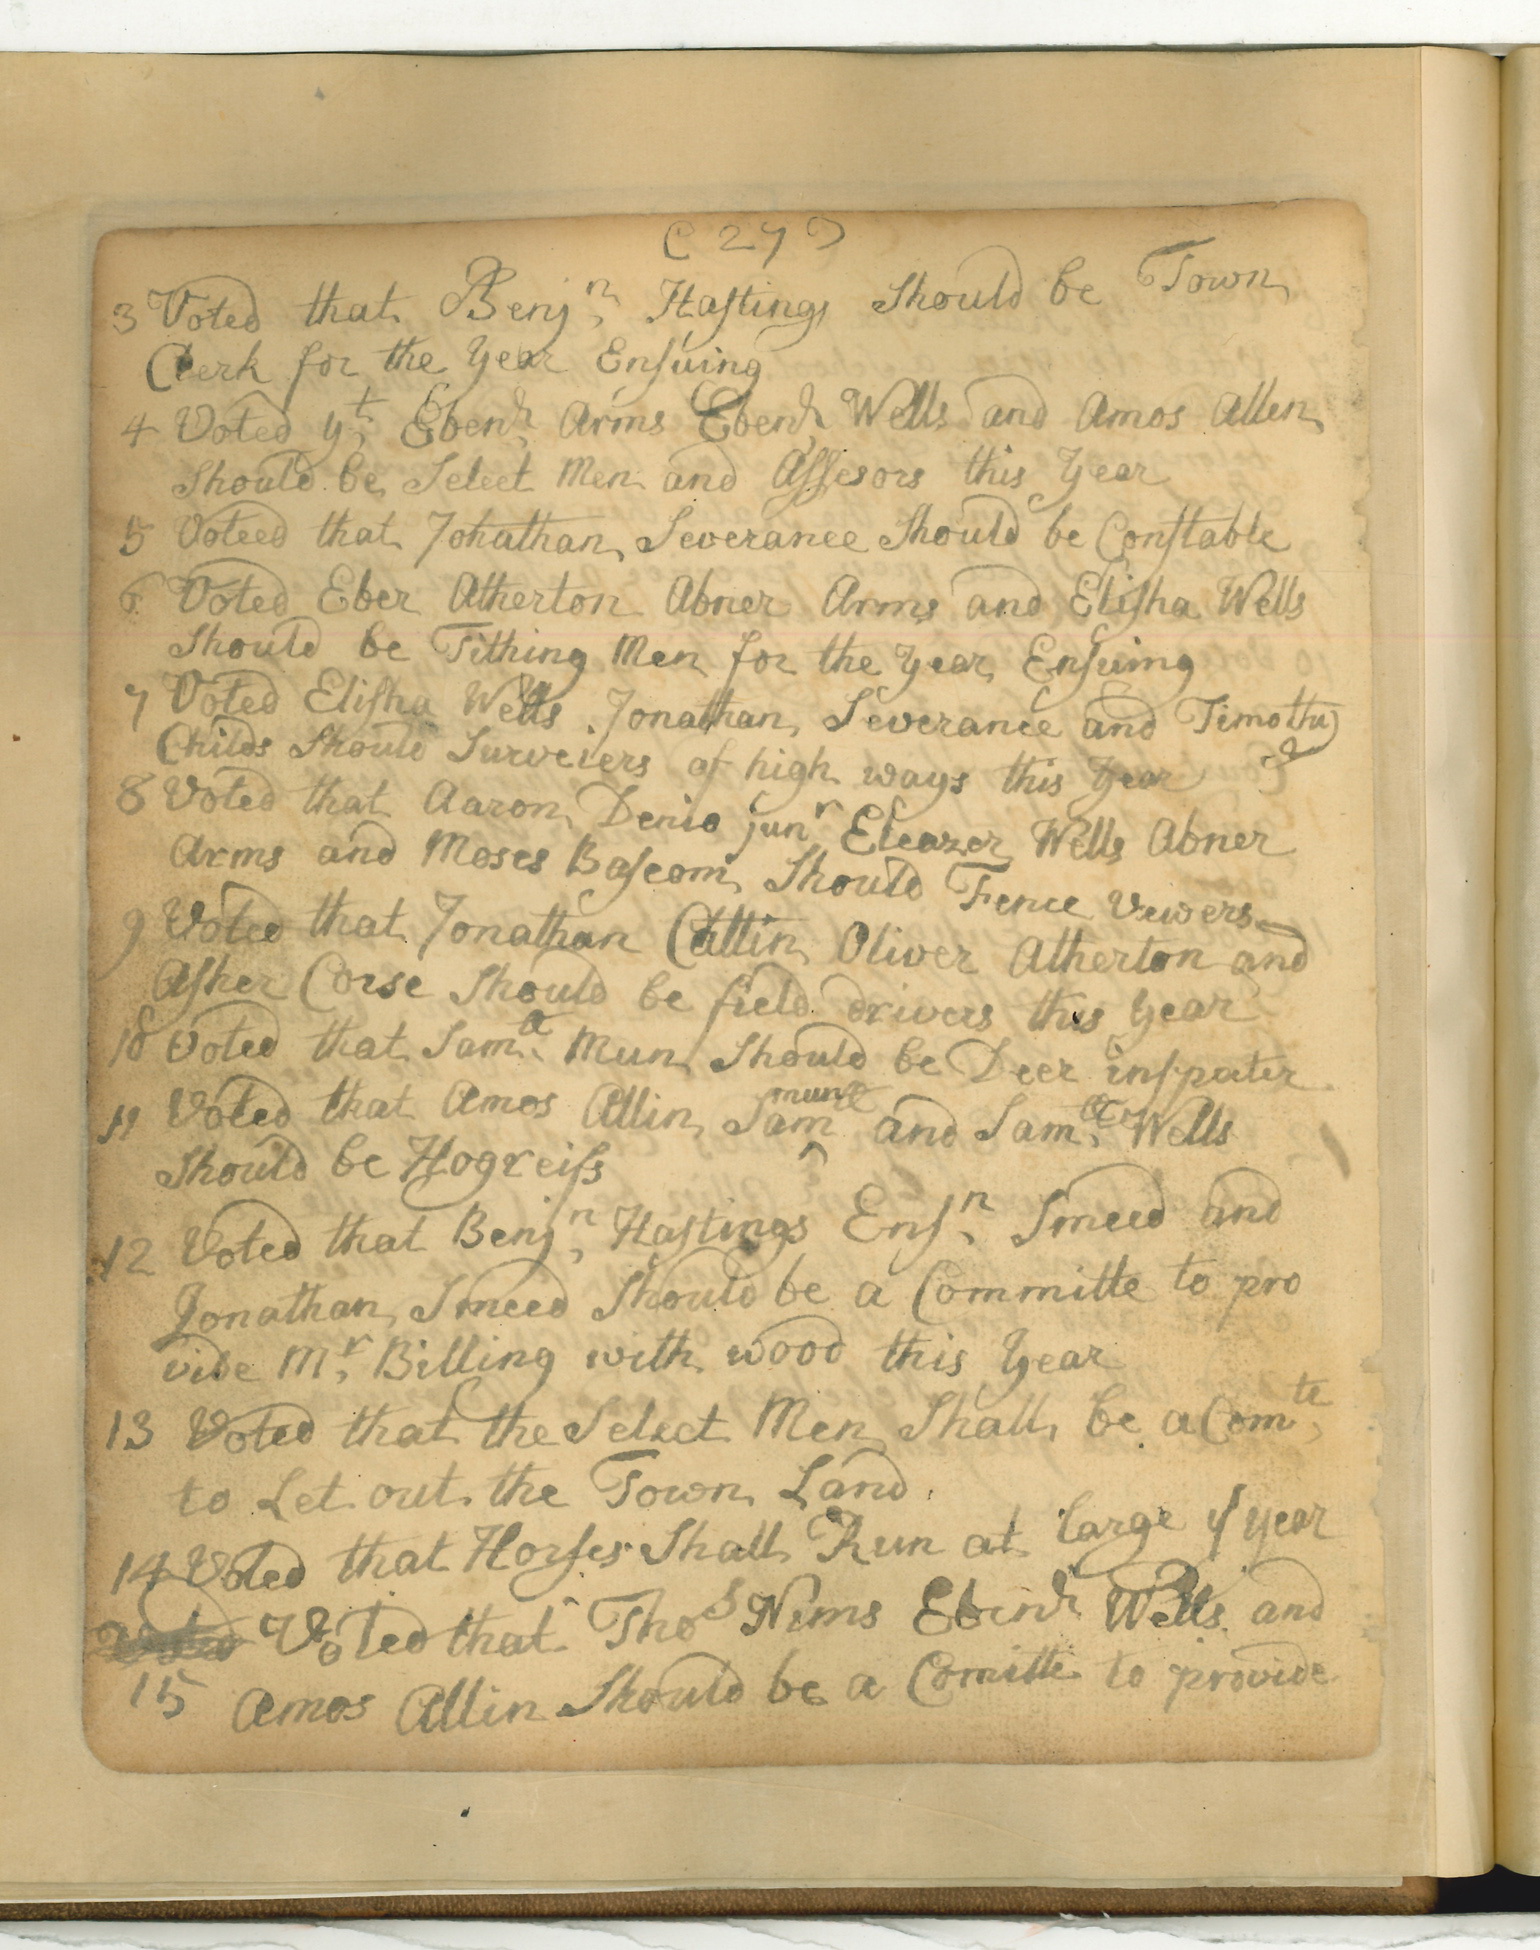 ( 27 )
3 Voted that Benjn Hastings Should be Town
Clerk for the Year Ensuing
4 Voted yt Ebenr Arms Ebenr Wells and Amos Allen
Should be Select Men and Assesors this Year
5 Voteed that Johathan Severance Should be Constable
6 Voted Eber Atherton Abner Arms and Elisha Wells
Should be Tithing Men for the Year Ensuing
7 Voted Elisha Wells Jonathan Severance and Timothy
Childs Should Surveiers of high ways this Year
8 Voted that Aaron Denio junr Eleazer Wells Abner
Arms and Moses Bascom Should Fence Vewers
9 Voted that Jonathan Cattlin Oliver Atherton and
Asher Corse Should be field drivers this Year
10 Voted that Samll Mun Should be Deer inspecter
11 Voted that Amos Allin Sam munn and Samll Wells
Should be Hogreifs
12 Voted that Benjn Hastings Ensn Smeed and
Jonathan Smeed Should be a Committe to pro
vide Mr Billing with wood this Year
13 Voted that the Select Men Shall be a Comte
to Let out the Town Land
14 Voted that Horses Shall Run at large ys year
Voted that Thos Nims Ebinr Wells and
15 Amos Allin Should be a Comitte to provide